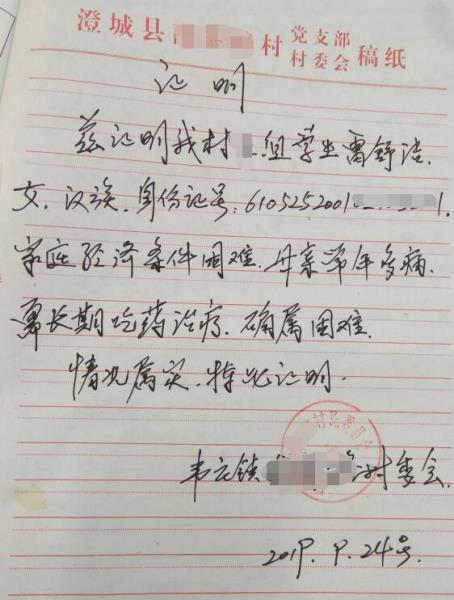 澄城县 村 党支部 村委会 稿纸
证明
兹证明我村 组学生雷舒洁,
女,汉族,身份证号:610525200 1.
家庭经济条件困难.母亲常年多病.
需长期吃药治疗.确属困难.
情况属实.特此证明.
村民委员会
韦庄镇 村委会.
2019.9.24号.